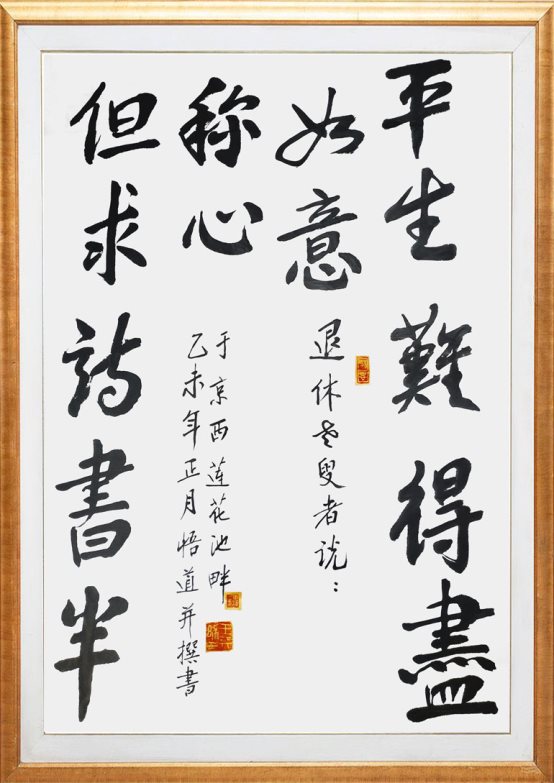 平生難得盡
如意
退休老叟者说：
但求诗書半
称心
于京西蓮花池畔
乙未年正月悟道并撰書